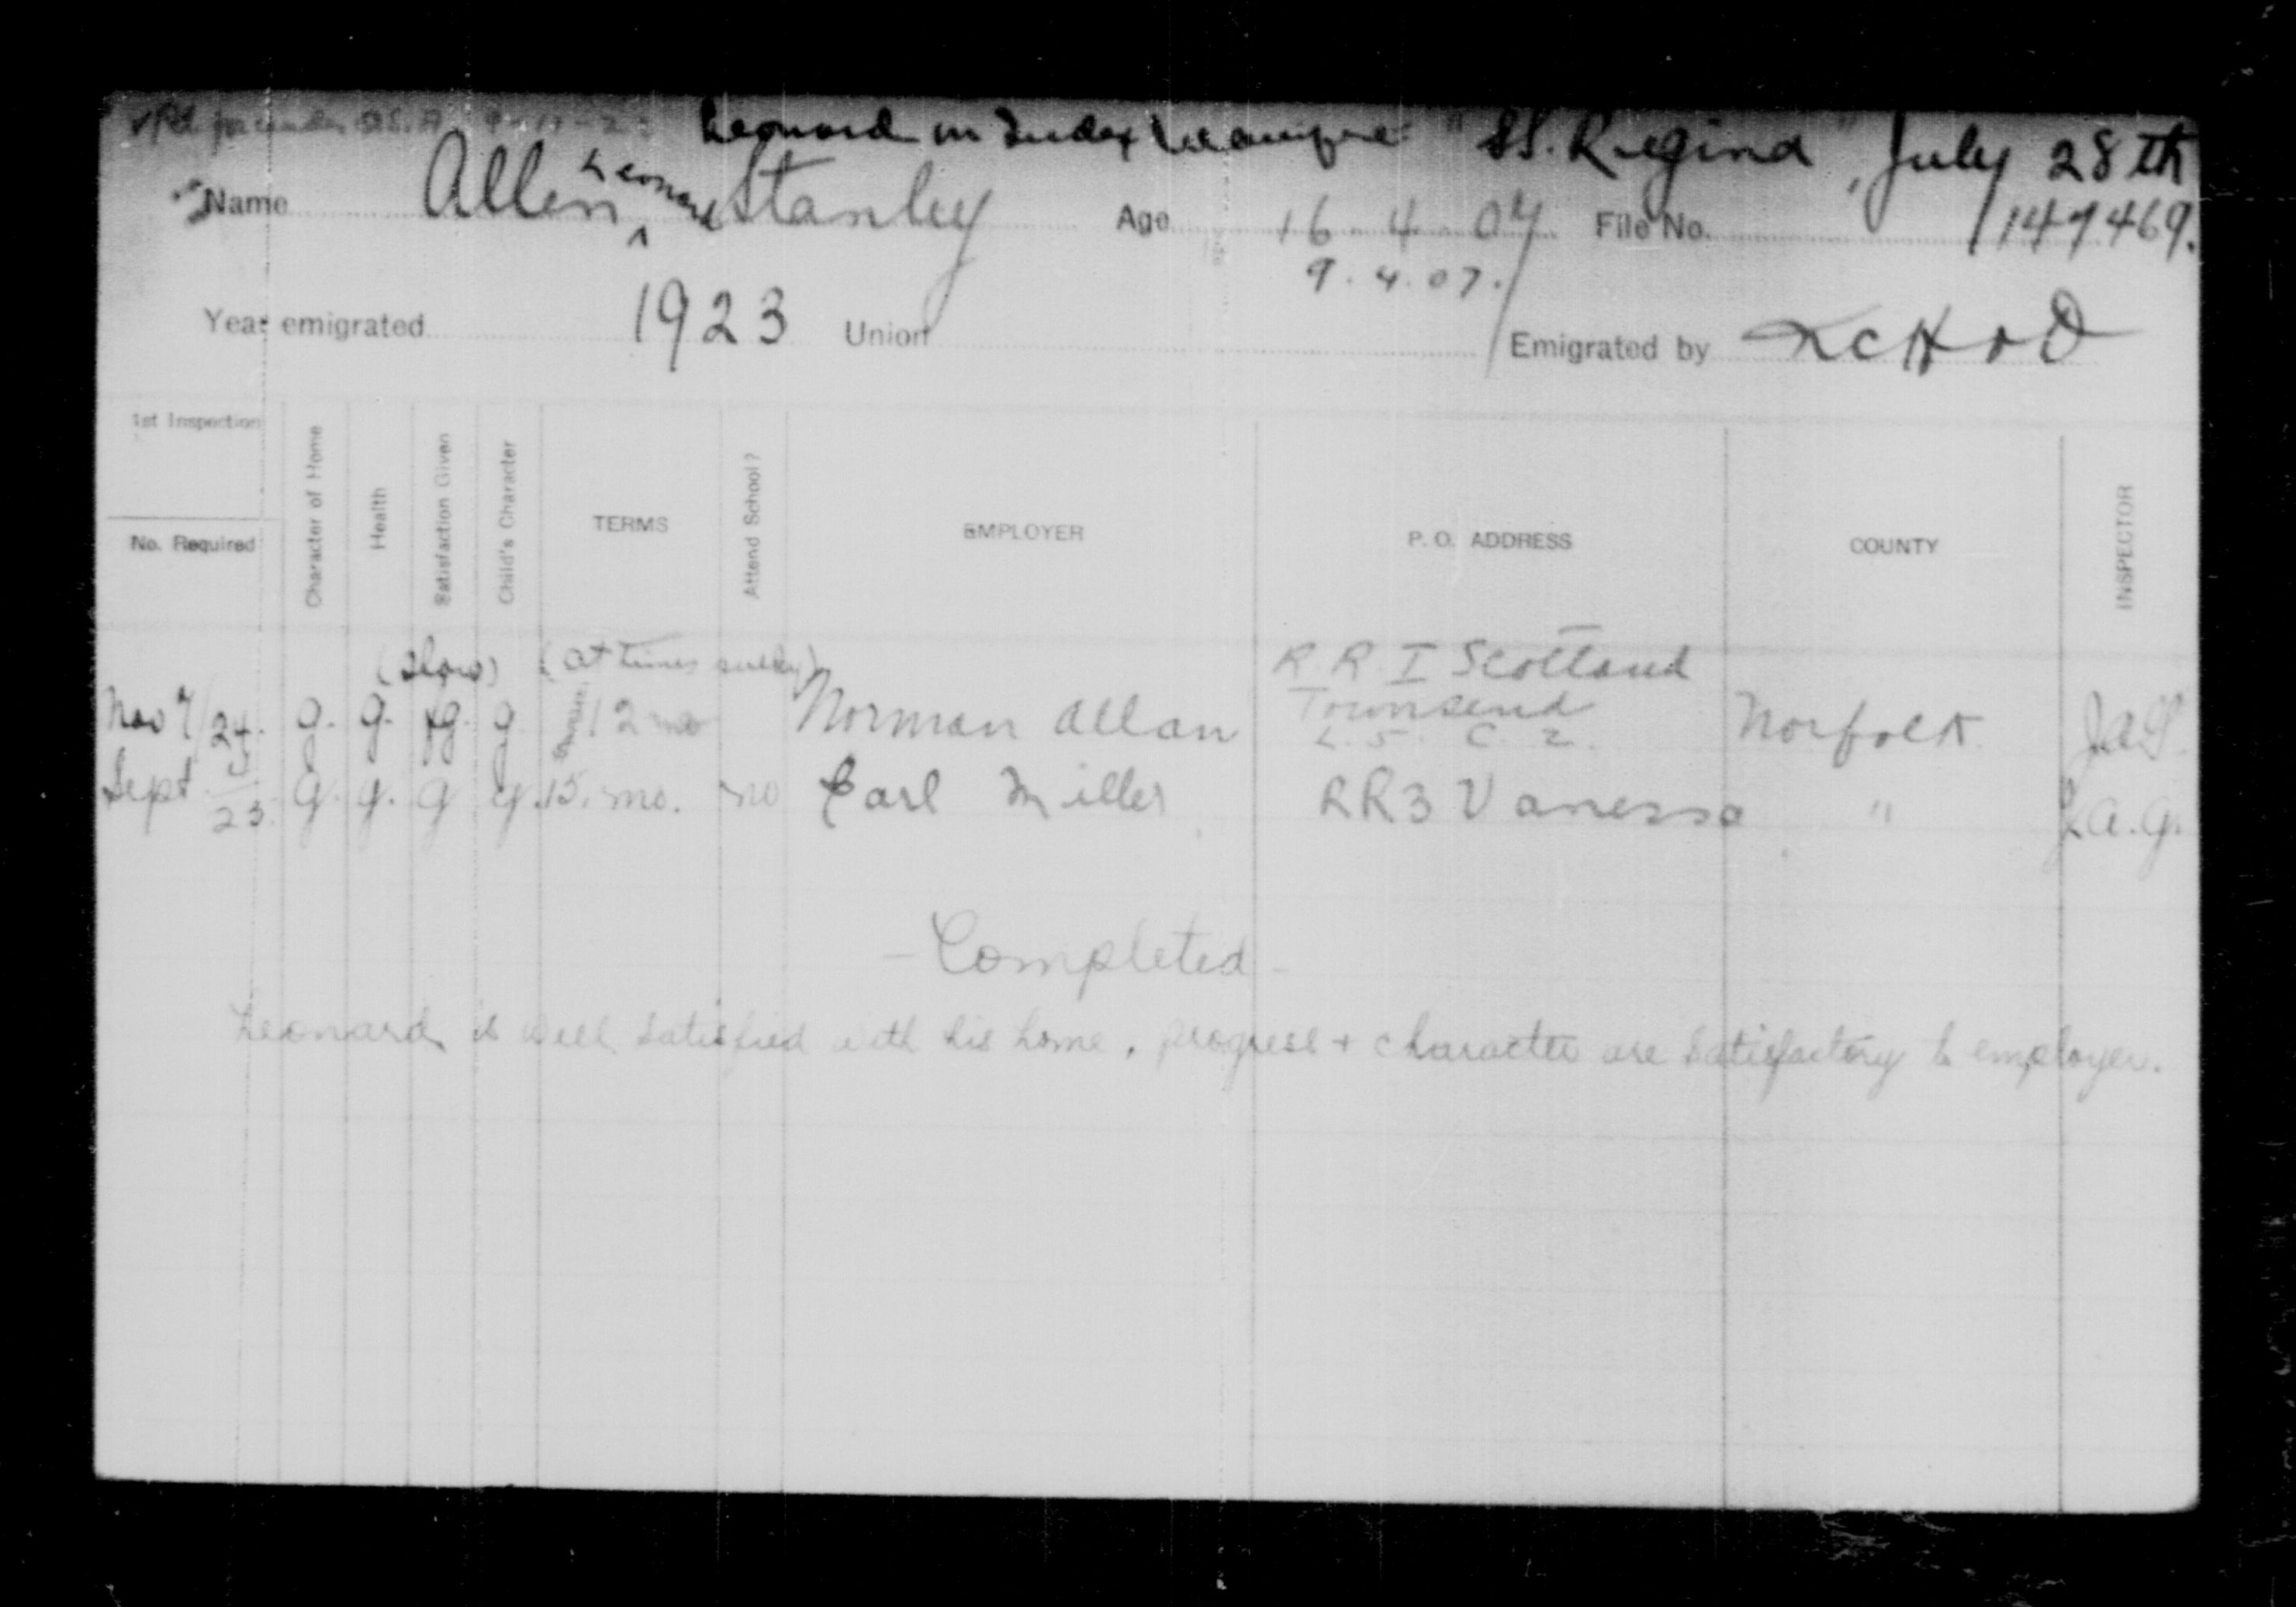 Leonard in Index "SS. Regina" July 28th
Name Allen, Leonard Stanley Age 16 4 07 File No. 147469.
9.4.07.
Year emigrated 1923 Union Emigrated by
1st Inspection
No. Required
Character of Home
Health
Satisfaction Given
Child's Character
TERMS
Attend School?
EMPLOYER
P. O. ADDRESS
COUNTY
INSPECTOR
(Slow) (at times sulky) R R I Scotland
Nov 7/24. g. g. fg. g 12 mo Norman Allan Townsend Norfolk
L. 5. C. 2.
Sept 23. g. g. g g. 15. mo. no Earl Miller RR3 Vanessa " J.A.G.
- Completed -
Leonard is well satisfied with his home, progress + character are satisfactory to employer.